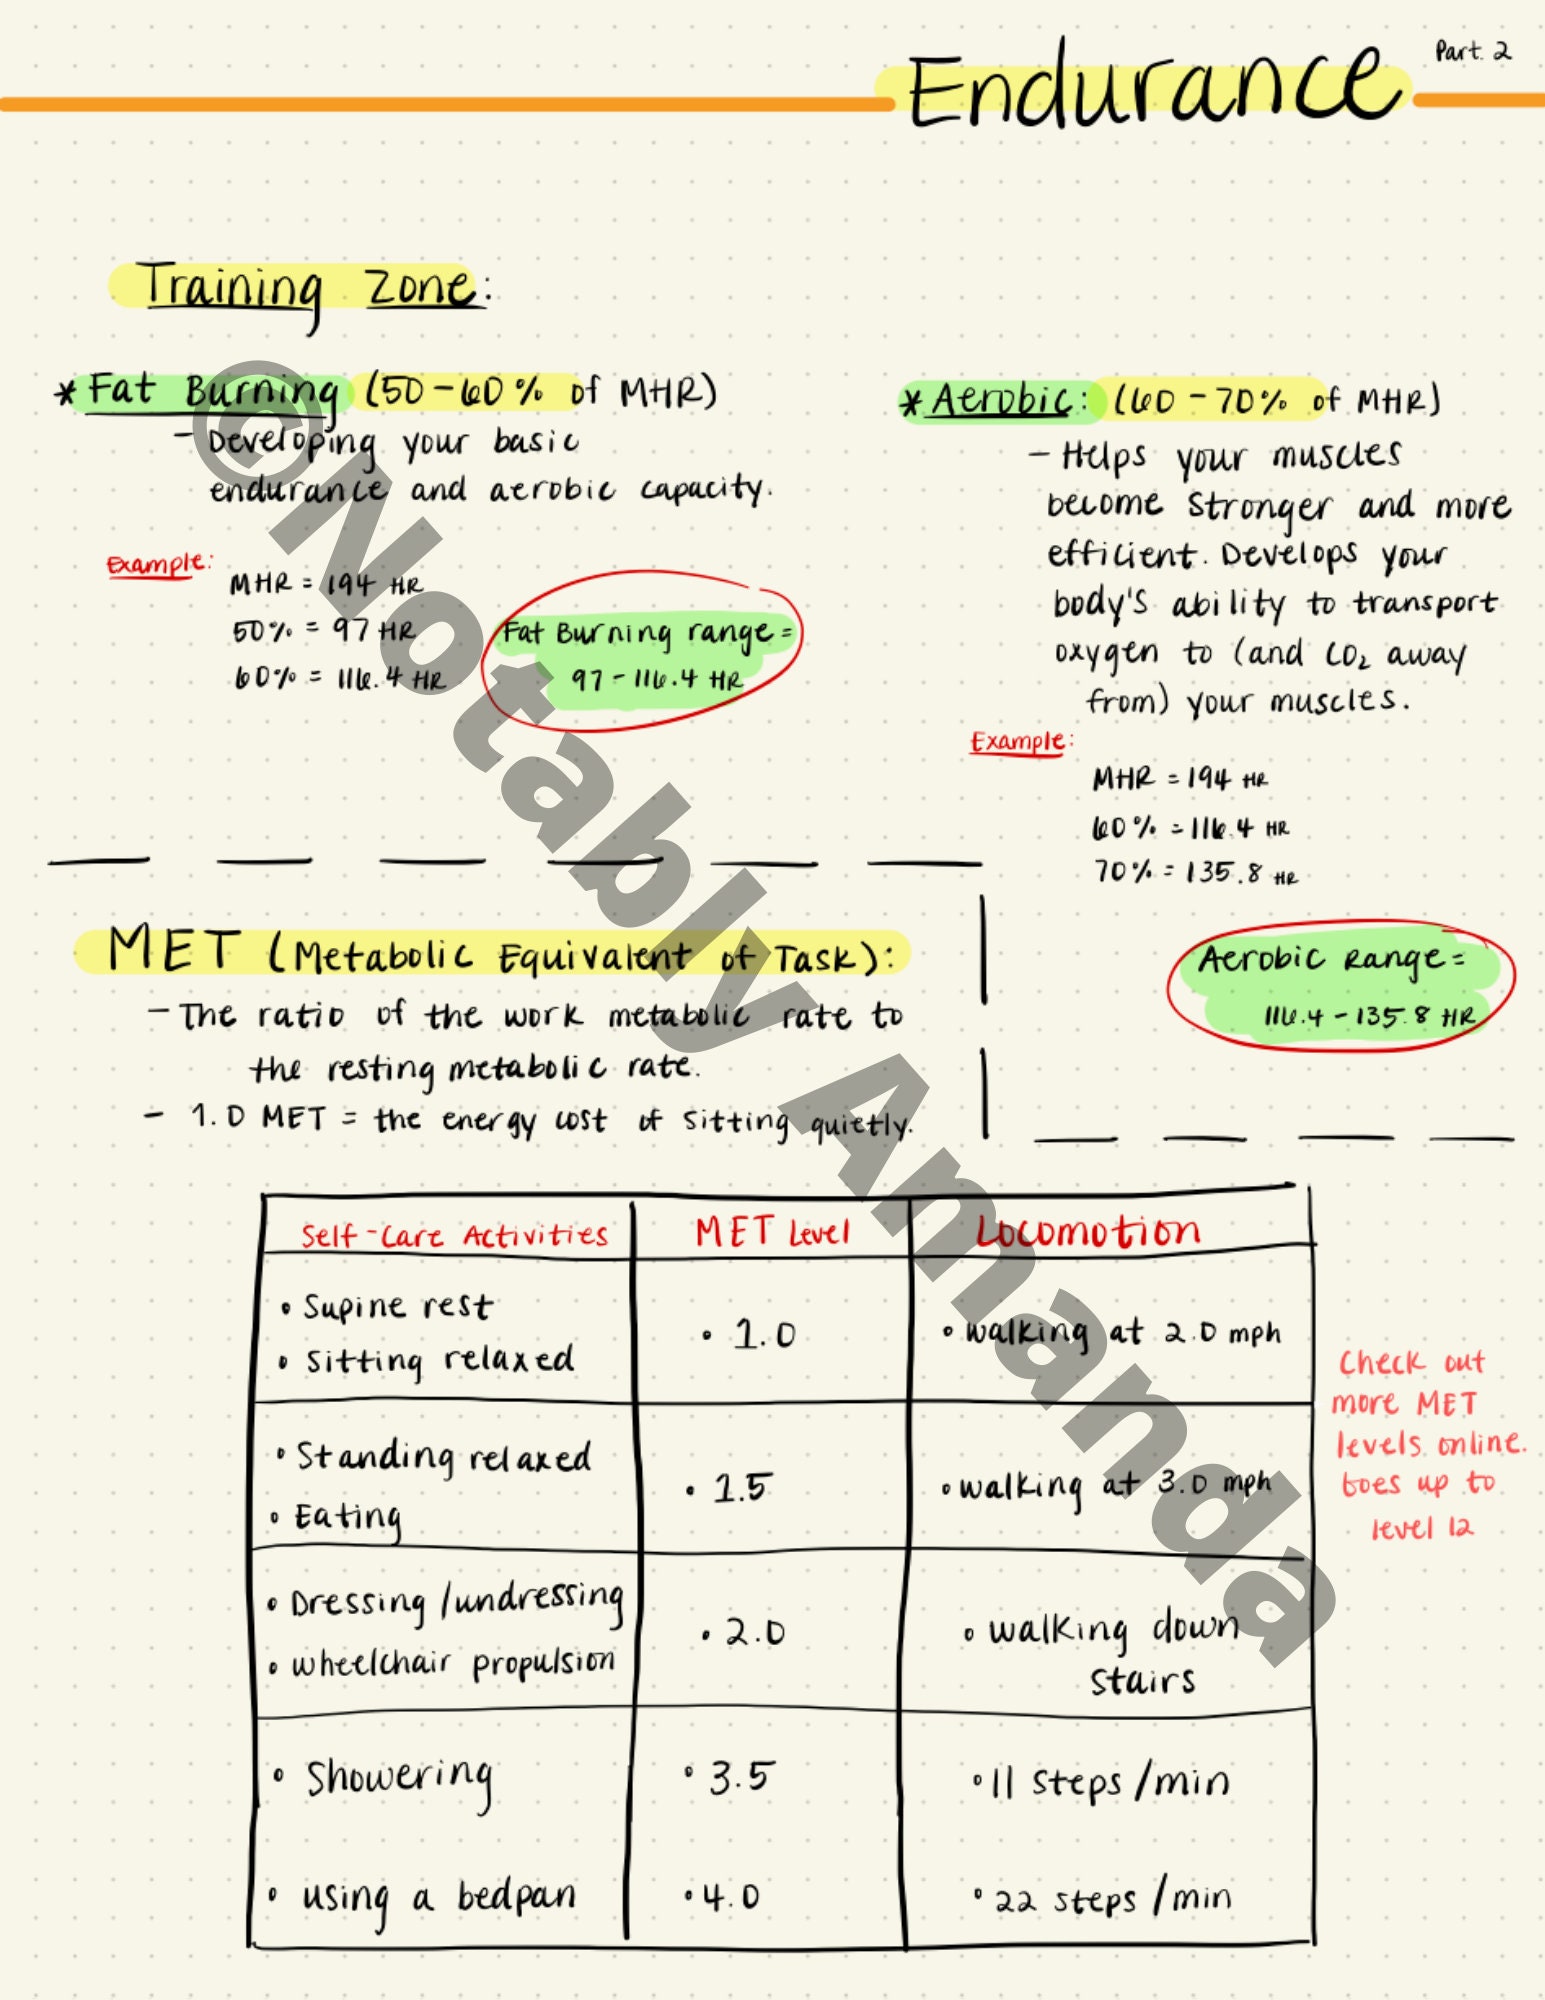 Endurance
Part. 2
Training Zone:
* Fat Burning (50-60% of MHR)
- Developing your basic
endurance and aerobic capacity.
Example:
MHR = 194 HR
50% = 97 HR
60% = 116.4 HR
Fat Burning range =
97 - 116.4 HR
* Aerobic: (60-70% of MHR)
- Helps your muscles
become stronger and more
efficient. Develops your
body's ability to transport
oxygen to (and CO₂ away
from) your muscles.
Example:
MHR = 194 HR
60% = 116.4 HR
70% = 135.8 HR
Aerobic Range =
116.4 - 135.8 HR
MET (Metabolic Equivalent of Task):
- The ratio of the work metabolic rate to
the resting metabolic rate.
- 1.0 MET = the energy cost of sitting quietly.
Self-Care Activities MET Level Locomotion
• Supine rest
• Sitting relaxed
• 1.0
• walking at 2.0 mph
• Standing relaxed
• Eating
• 1.5
• walking at 3.0 mph
• Dressing/undressing
• wheelchair propulsion
• 2.0
• walking down
stairs
• Showering • 3.5 • 11 steps/min
• using a bedpan • 4.0 • 22 steps/min
Check out
more MET
levels online.
Goes up to
level 12
©Notably Amanda